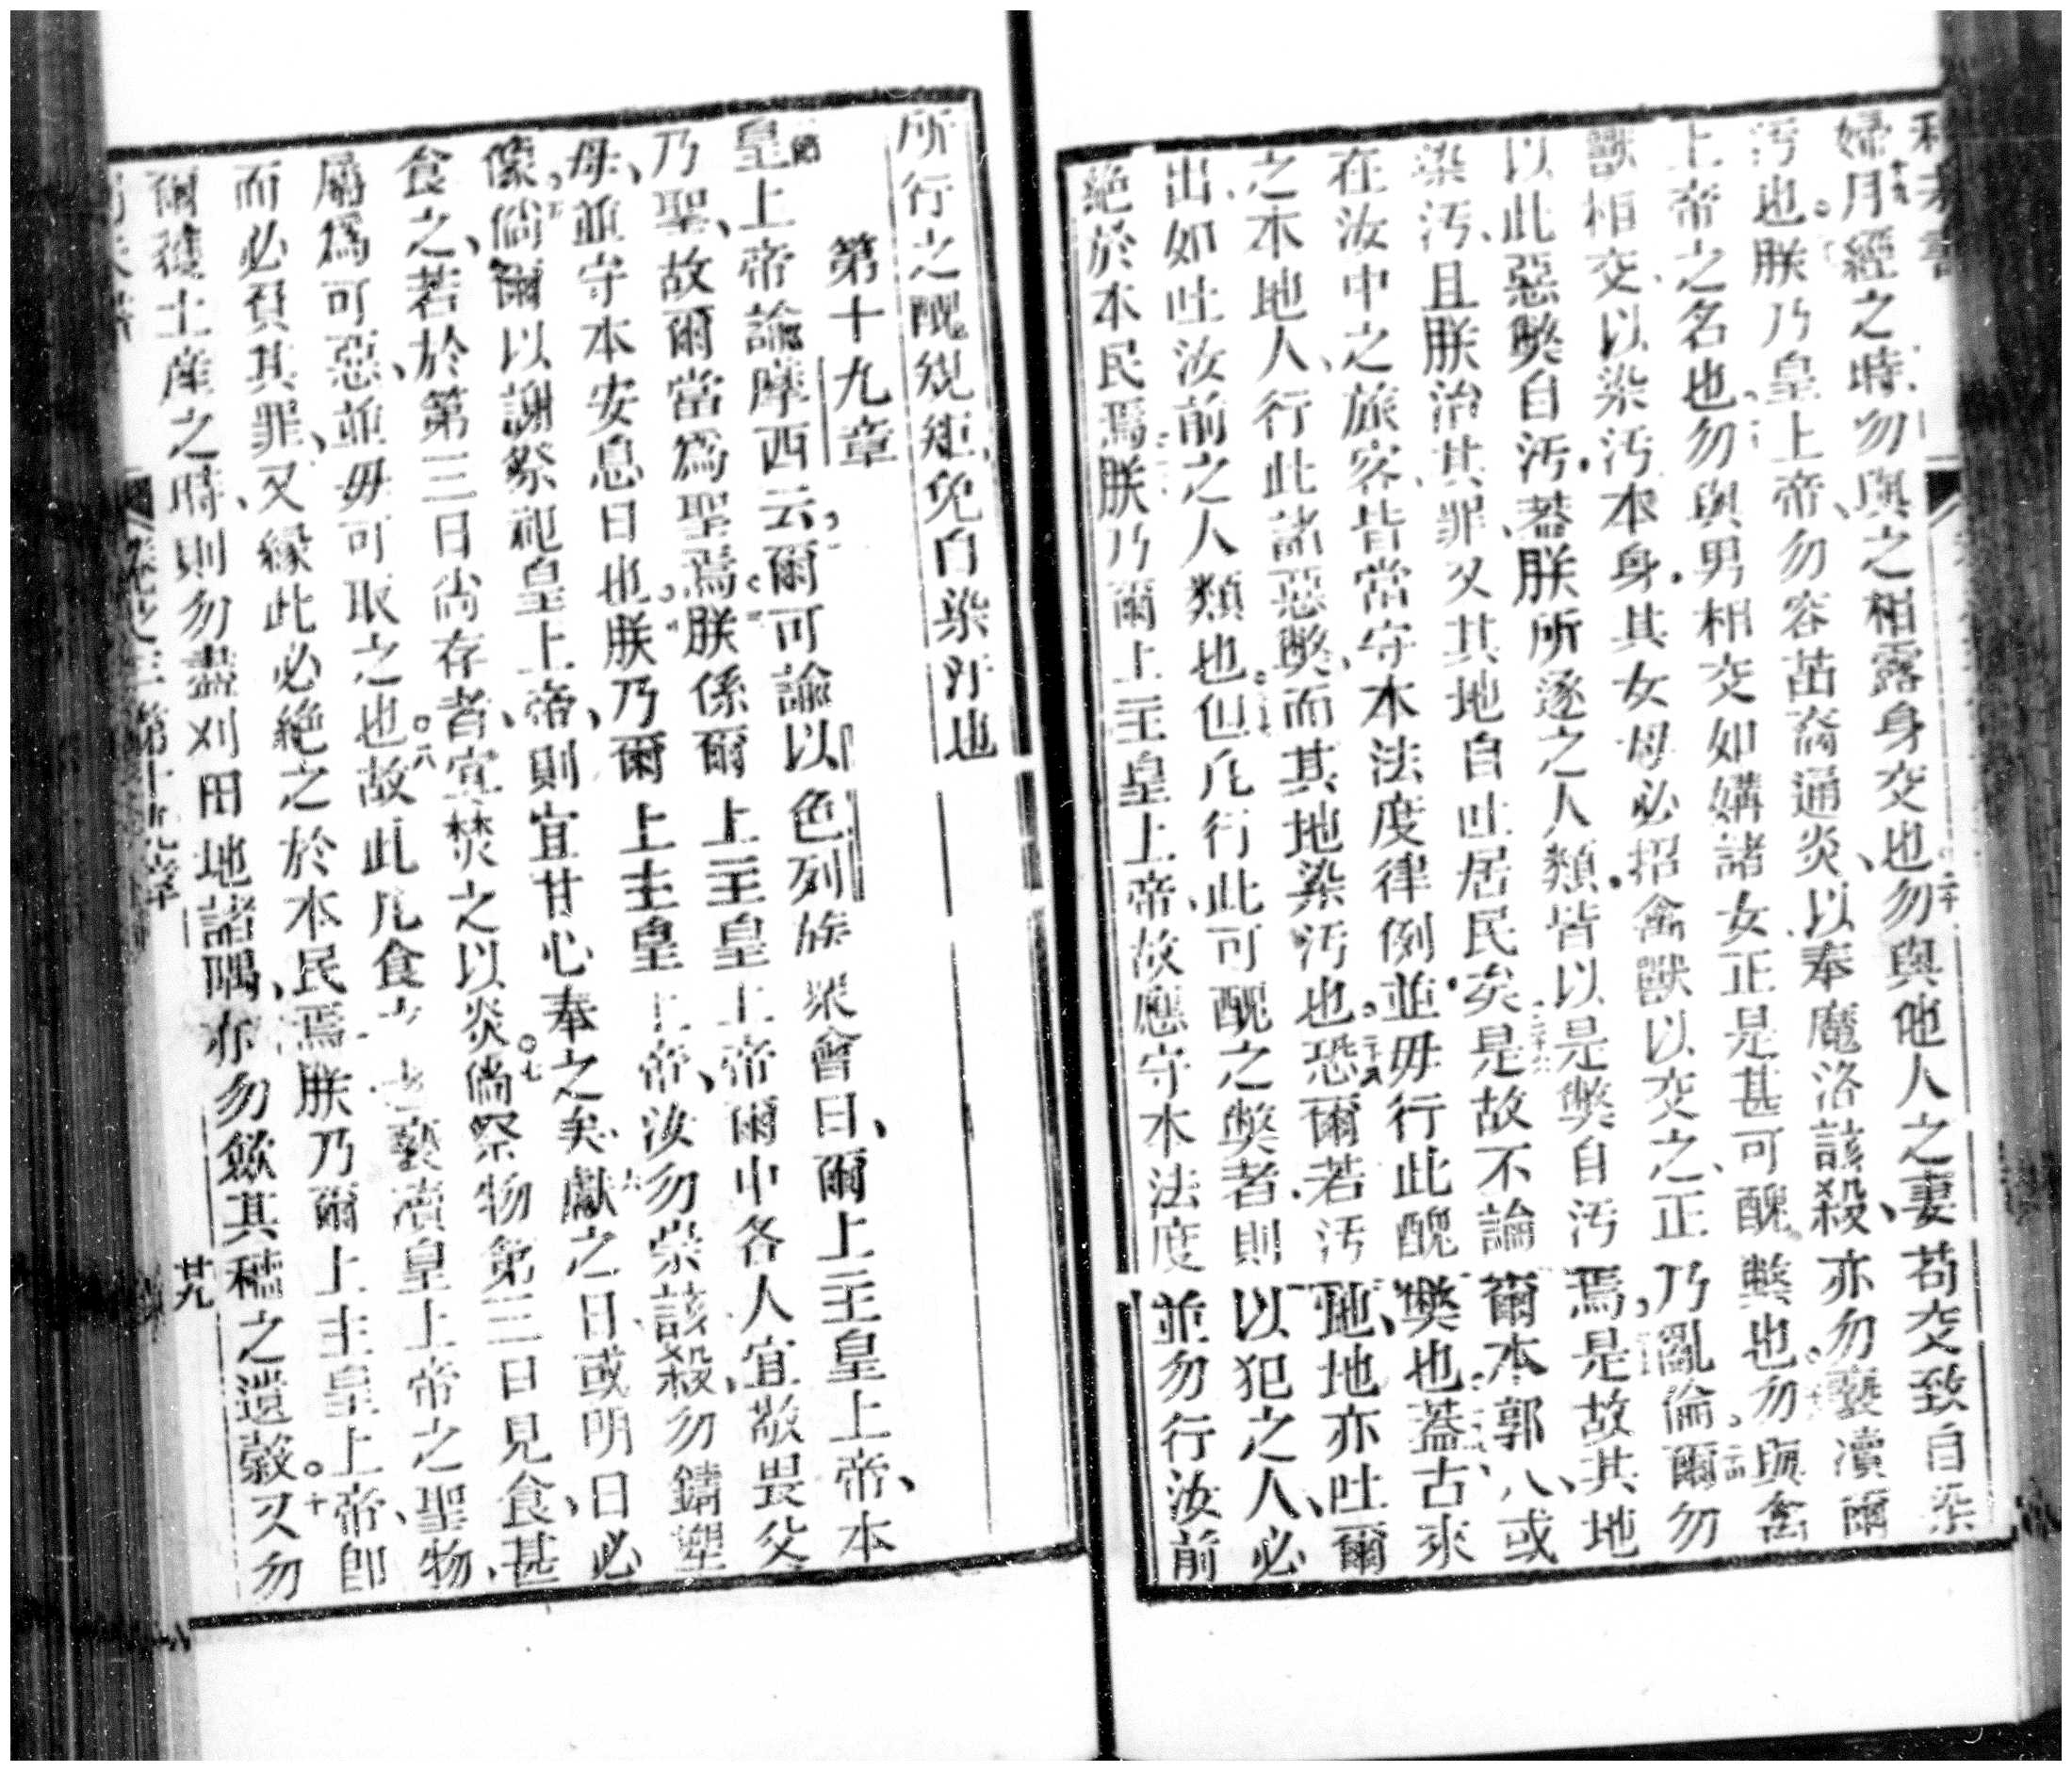 婦月經之時、勿與之相露身交也勿與他人之妻、苟交致自染
汚也。朕乃皇上帝、勿容苗裔通炎、以奉魔洛該殺、亦勿褻瀆爾
上帝之名也。勿與男相交如媾諸女正是甚可醜弊也。勿與禽
獸相交、以染汚本身、其女母必招禽獸以交之、正乃亂倫。爾勿
以此惡弊自汚、葢朕所逐之人類、皆以是弊自汚焉、是故其地
染汚、且朕治其罪、又其地自吐居民矣。是故不論爾本郭人、或
在汝中之旅客、皆當守本法度律例、並毋行此醜弊也。蓋古來
之本地人、行此諸惡弊、而其地染汚也。恐爾若汚地、地亦吐爾
出、如吐汝前之人類也。但凡行此可醜之弊者、則以犯之人、必
絕於本民焉。朕乃爾上主皇上帝、故應守本法度、並勿行汝前
所行之醜規矩、免自染汙也
第十九章
節皇上帝諭摩西云、爾可諭以色列族衆會曰、爾上主皇上帝、本
乃聖、故爾當爲聖焉。朕係爾上主皇上帝、爾中各人宜敬畏父
母、並守本安息日也。朕乃爾上主皇上帝、汝勿崇該殺、勿鑄塑
像。倘爾以謝祭祀皇上帝、則宜甘心奉之矣。六獻之日或明日必
食之、若於第三日尚存者、宜焚之以炎。七倘祭物第三日見食、甚
屬爲可惡、並毋可取之也。八故此凡食褻瀆皇上帝之聖物、
而必負其罪、又緣此必絕之於本民焉。朕乃爾上主皇上帝、卽
爾穫土産之時、則勿盡刈田地諸隅、亦勿歛其穡之遺穀。十又勿
卷之三 第十九章 廿九